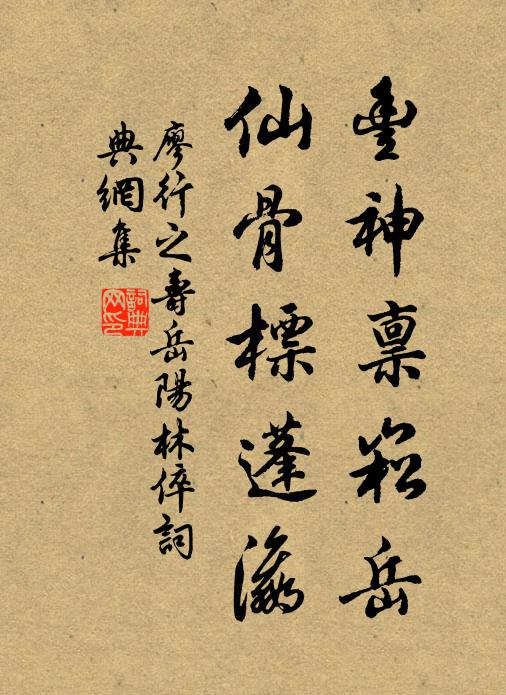 豐神禀崧岳
仙骨標蓬瀛
廖行之壽岳陽林倅詞
典網集
詞典
网印